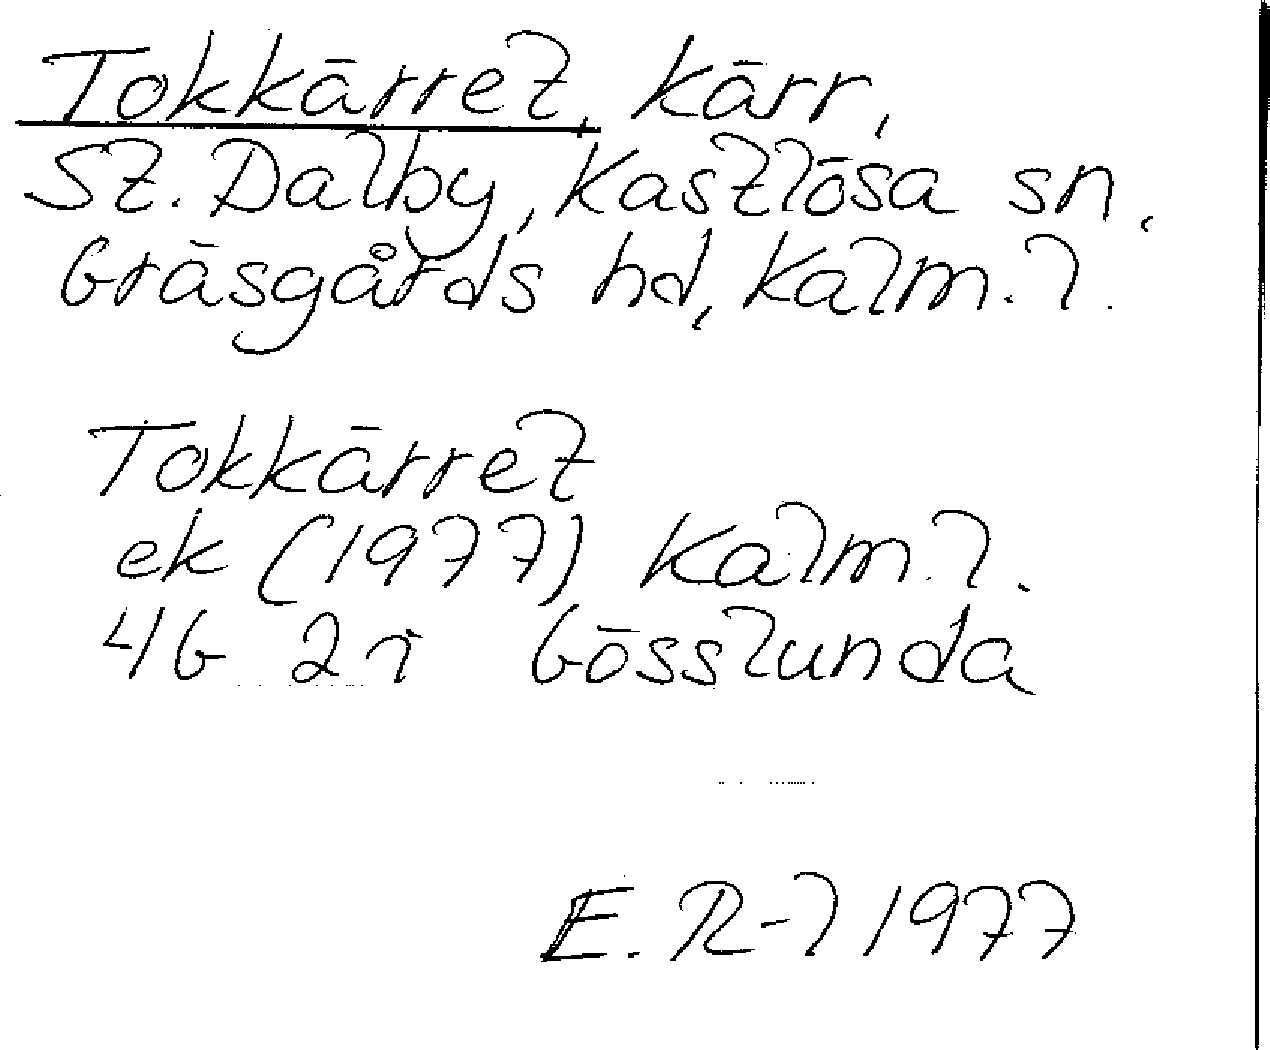 Tokkärret, kärr,
St. Dalby, Kastlösa sn.
Gräsgårds hd, Kalm. l.
Tokkärret
ek (1977) Kalm. l.
4G 2i Gösslunda
E. R-l 1977